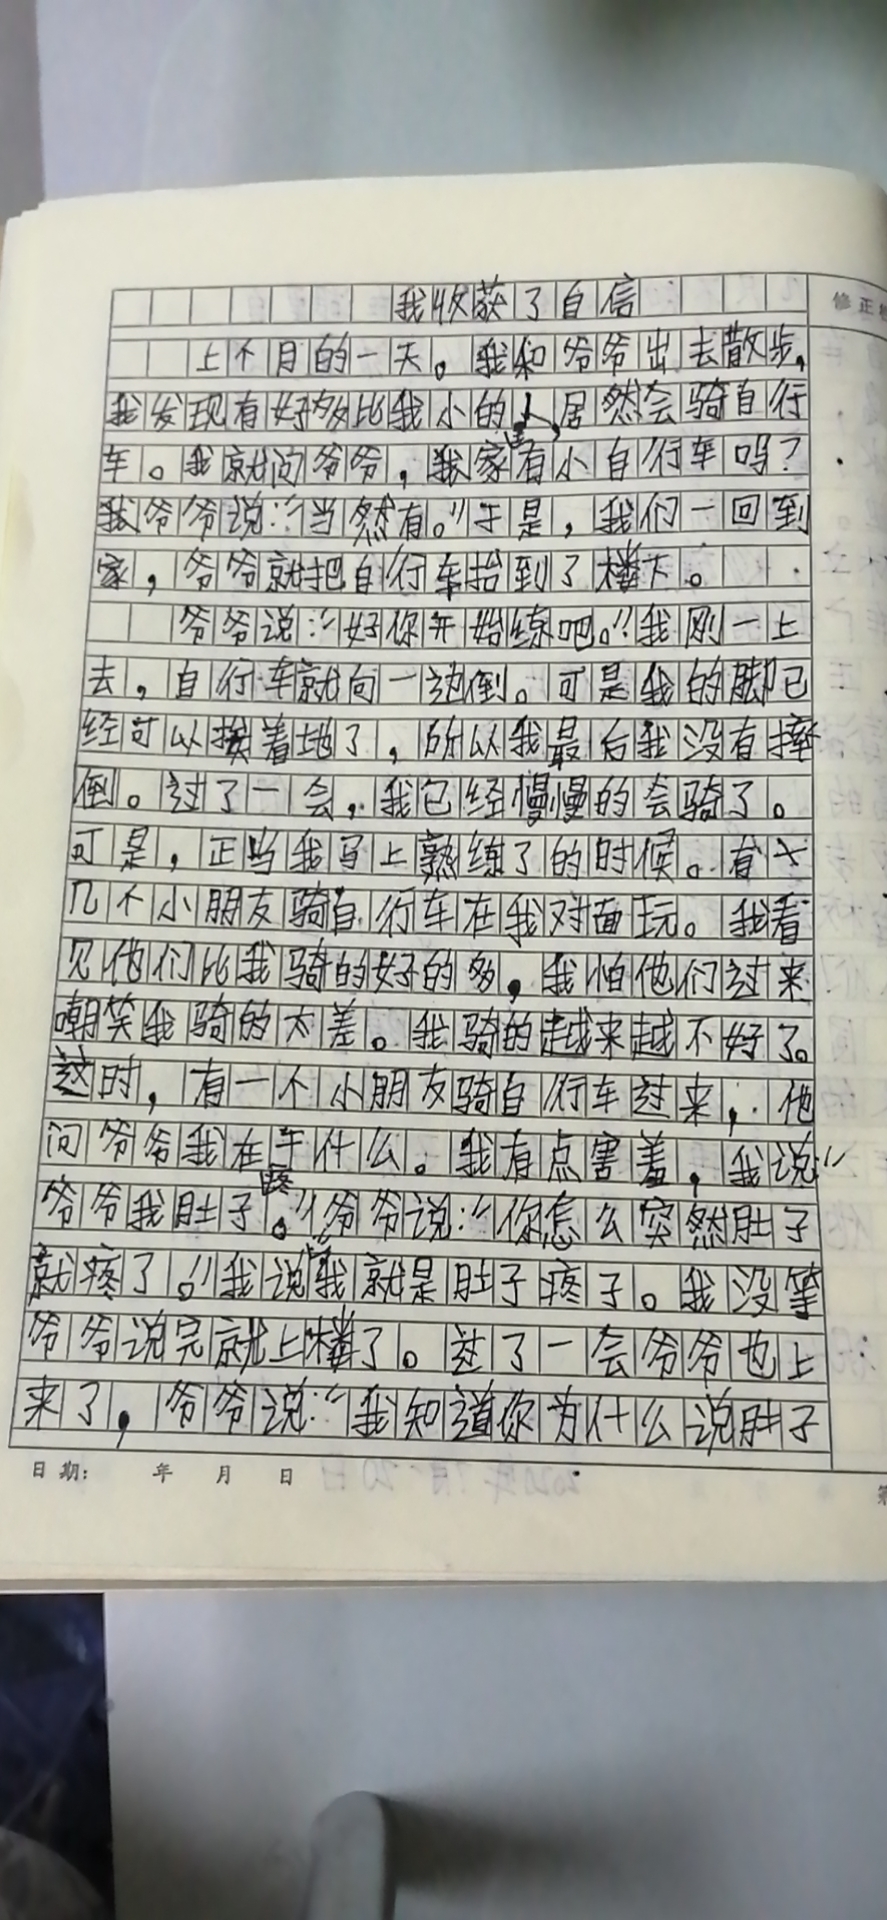 我收获了自信
修正
上个月的一天。我和爷爷出去散步,
我发现有好多比我小的人,居然会骑自行
车。我就问爷爷,我家有小自行车吗?
我爷爷说:“当然有。”于是,我们一回到
家,爷爷就把自行车抬到了楼下。
爷爷说:“好你开始练吧。”我刚一上
去,自行车就向一边倒。可是我的脚已
经可以挨着地了,所以我最后我没有摔
倒。过了一会,我已经慢慢的会骑了。
可是,正当我马上熟练了的时候。有十
几个小朋友骑自行车在我对面玩。我看
见他们比我骑的好的多,我怕他们过来
嘲笑我骑的太差。我骑的越来越不好了。
这时,有一个小朋友骑自行车过来,他
问爷爷我在干什么。我有点害羞,我说“
爷爷我肚子疼。”爷爷说:“你怎么突然肚子
就疼了。”我说“我就是肚子疼子。我没等
爷爷说完就上楼了。过了一会爷爷也上
来了,爷爷说:“我知道你为什么说肚子
日期: 年 月 日